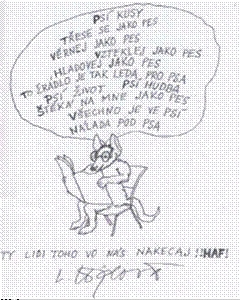 PSÍ KUSY
TŘESE SE JAKO PES
VĚRNEJ JAKO PES
VZTEKLEJ JAKO PES
HLADOVEJ JAKO PES
TO ŽRÁDLO JE TAK LEDA PRO PSA
PSÍ ŽIVOT PSÍ HUDBA
ŠTĚKÁ NA MNE JAKO PES
VŠECHNO JE VE PSÍ
NÁLADA POD PSA
TY LIDI TOHO VO NÁS NAKECAJ !!HAF!